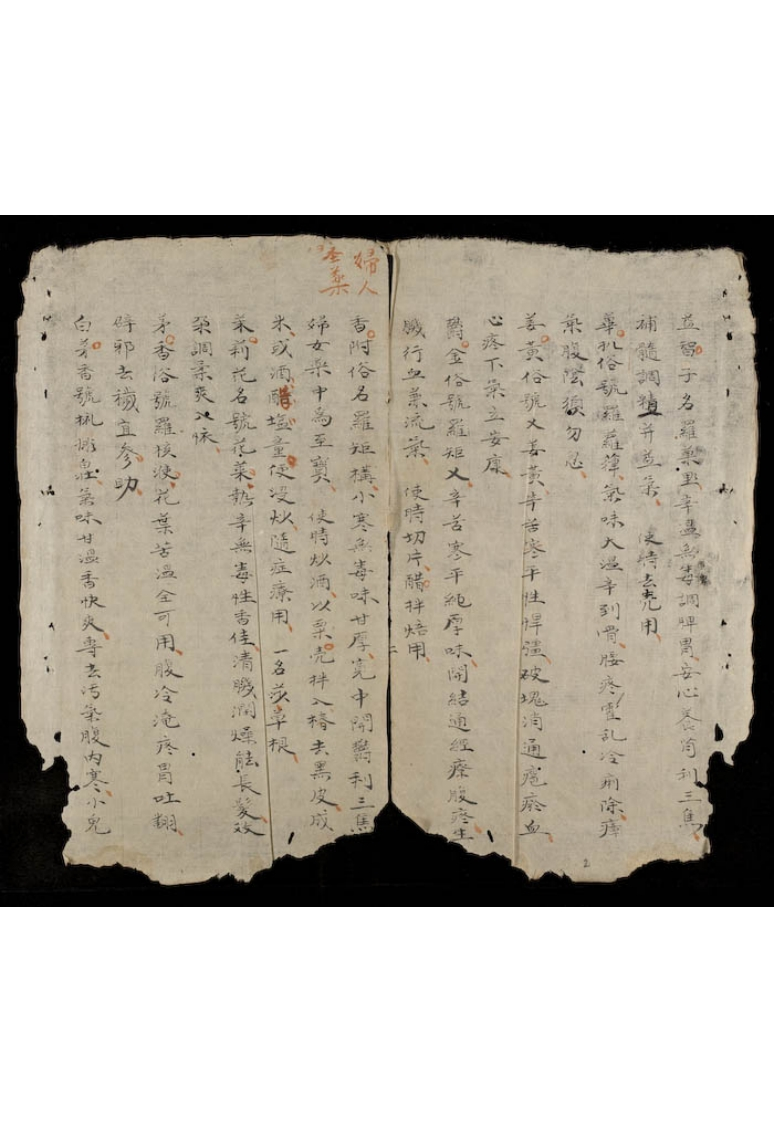 益智子名羅藥辛溫無毒調脾胃安心養筋利三焦
補髓調精并益氣使時去壳用
蓽扒俗號羅蓽氣味大溫辛到骨腰疼霍乱冷痢除痺
氣腹陰須勿忘
姜黃俗號乂姜黃辛苦寒平性悍彊破塊消通瘀血
心疼下氣立安康
欝金俗號羅矩乂辛苦寒平純厚味開結通經療腹疼生
肌行血兼流氣使時切片醋拌焙用
婦人
圣藥
香附俗名羅矩構小寒無毒味甘厚寬中開欝利三焦
婦女藥中為至寶使時炒酒以栗壳拌入樁去黑皮成
米或酒醋塩童便浸炒隨症療用一名莎草根
茉莉花名號花菜熱辛無毒性香佳清臟潤燥能長髮效
藥調柔
茅香俗號羅花葉苦溫全可用腹冷淹疼胃吐翻
辟邪去穢宜參助
白茅香號氣味甘溫香快爽專去污染腹内寒小兒